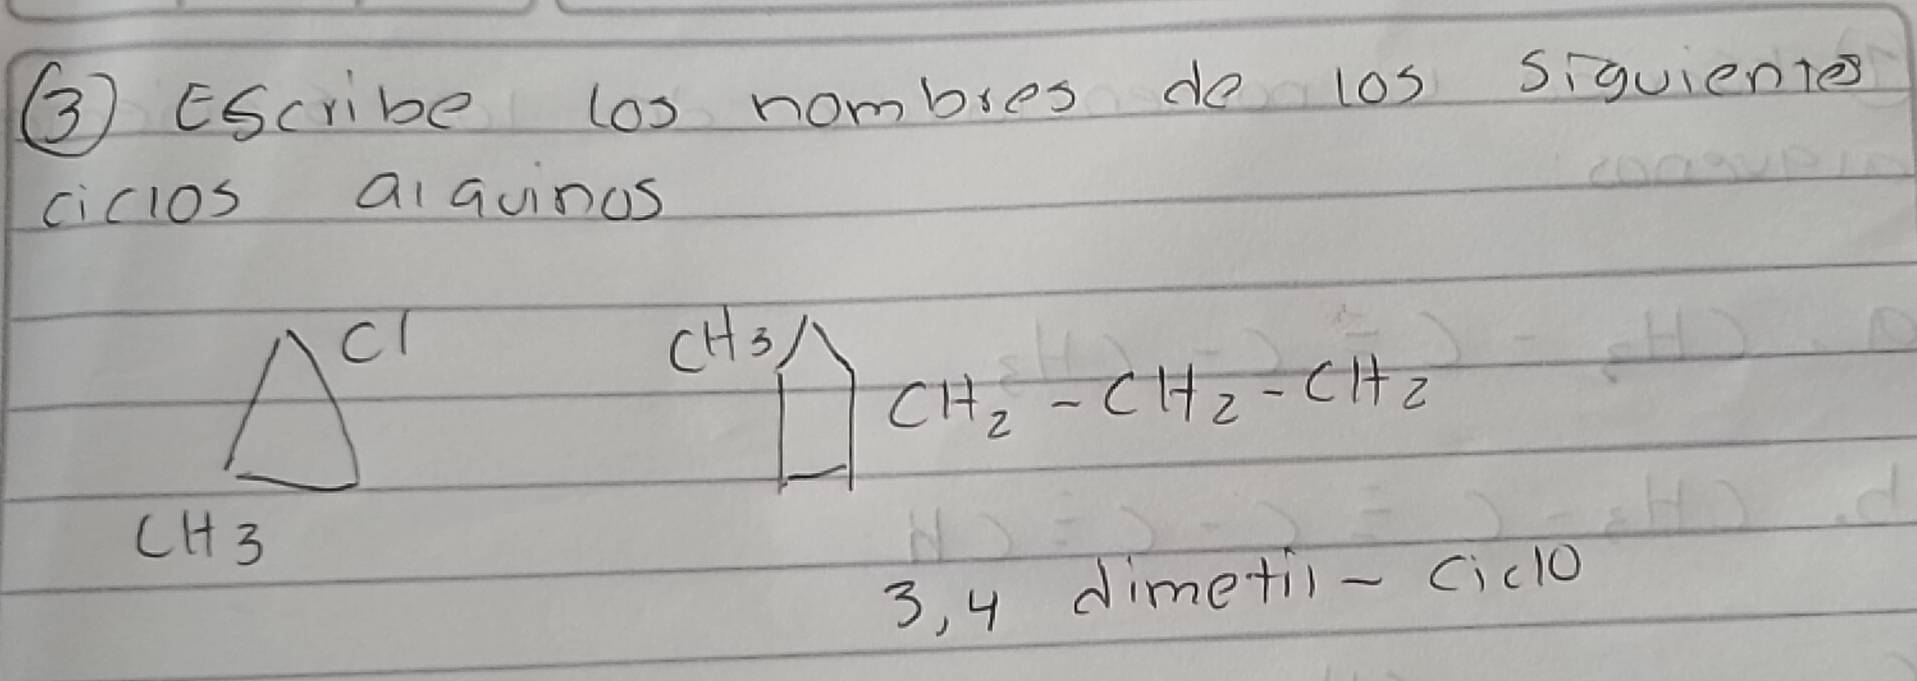 3 Escribe los nombres de los siguientes
ciclos alquinos
Cl
CH3
CH3
CH2 - CH2 - CH2
3,4 dimetil - ciclo